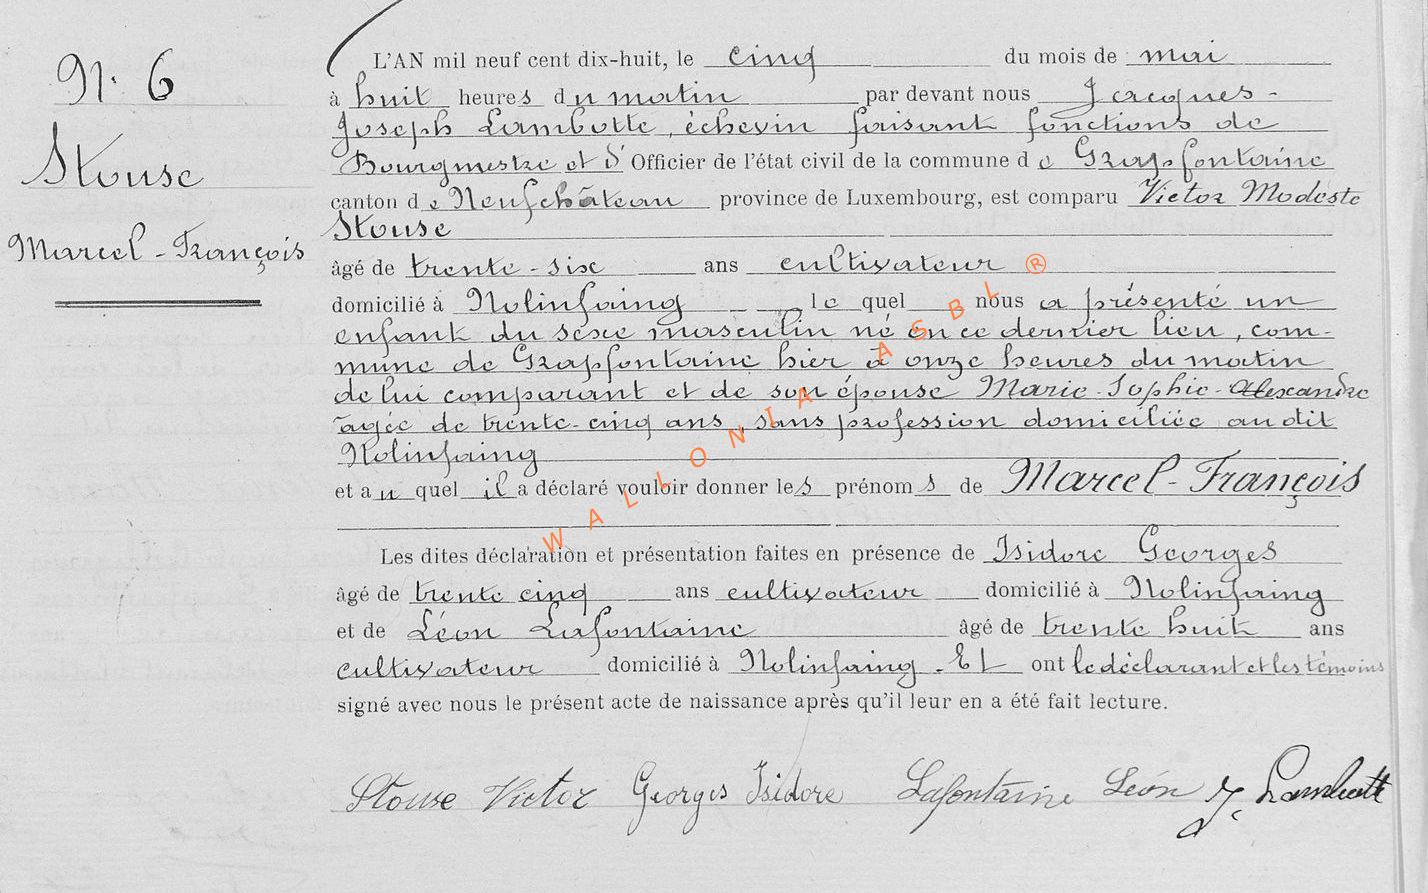 N. 6
Stouse
Marcel-François
L'AN mil neuf cent dix-huit, le cinq du mois de mai
à huit heures du matin par devant nous Jacques-
Joseph Lambotte, échevin faisant fonctions de
Bourgmestre et d'Officier de l'état civil de la commune de Grapfontaine
canton de Neufchâteau province de Luxembourg, est comparu Victor Modeste
Stouse
âgé de trente-six ans cultivateur
domicilié à Nolinfaing lequel nous a présenté un
enfant du sexe masculin né en ce dernier lieu, com-
mune de Grapfontaine hier à onze heures du matin
de lui comparant et de son épouse Marie-Sophie-Alexandre
âgée de trente-cinq ans, sans profession domiciliée au dit
Nolinfaing
et au quel il a déclaré vouloir donner les prénoms de Marcel-François
Les dites déclaration et présentation faites en présence de Isidore Georges
âgé de trente cinq ans cultivateur domicilié à Nolinfaing
et de Léon Lafontaine âgé de trente huit ans
cultivateur domicilié à Nolinfaing. Et ont le déclarant et les témoins
signé avec nous le présent acte de naissance après qu'il leur en a été fait lecture.
Stouse Victor Georges Isidore Lafontaine Léon J. Lambotte
WALLONIA ASBL ®